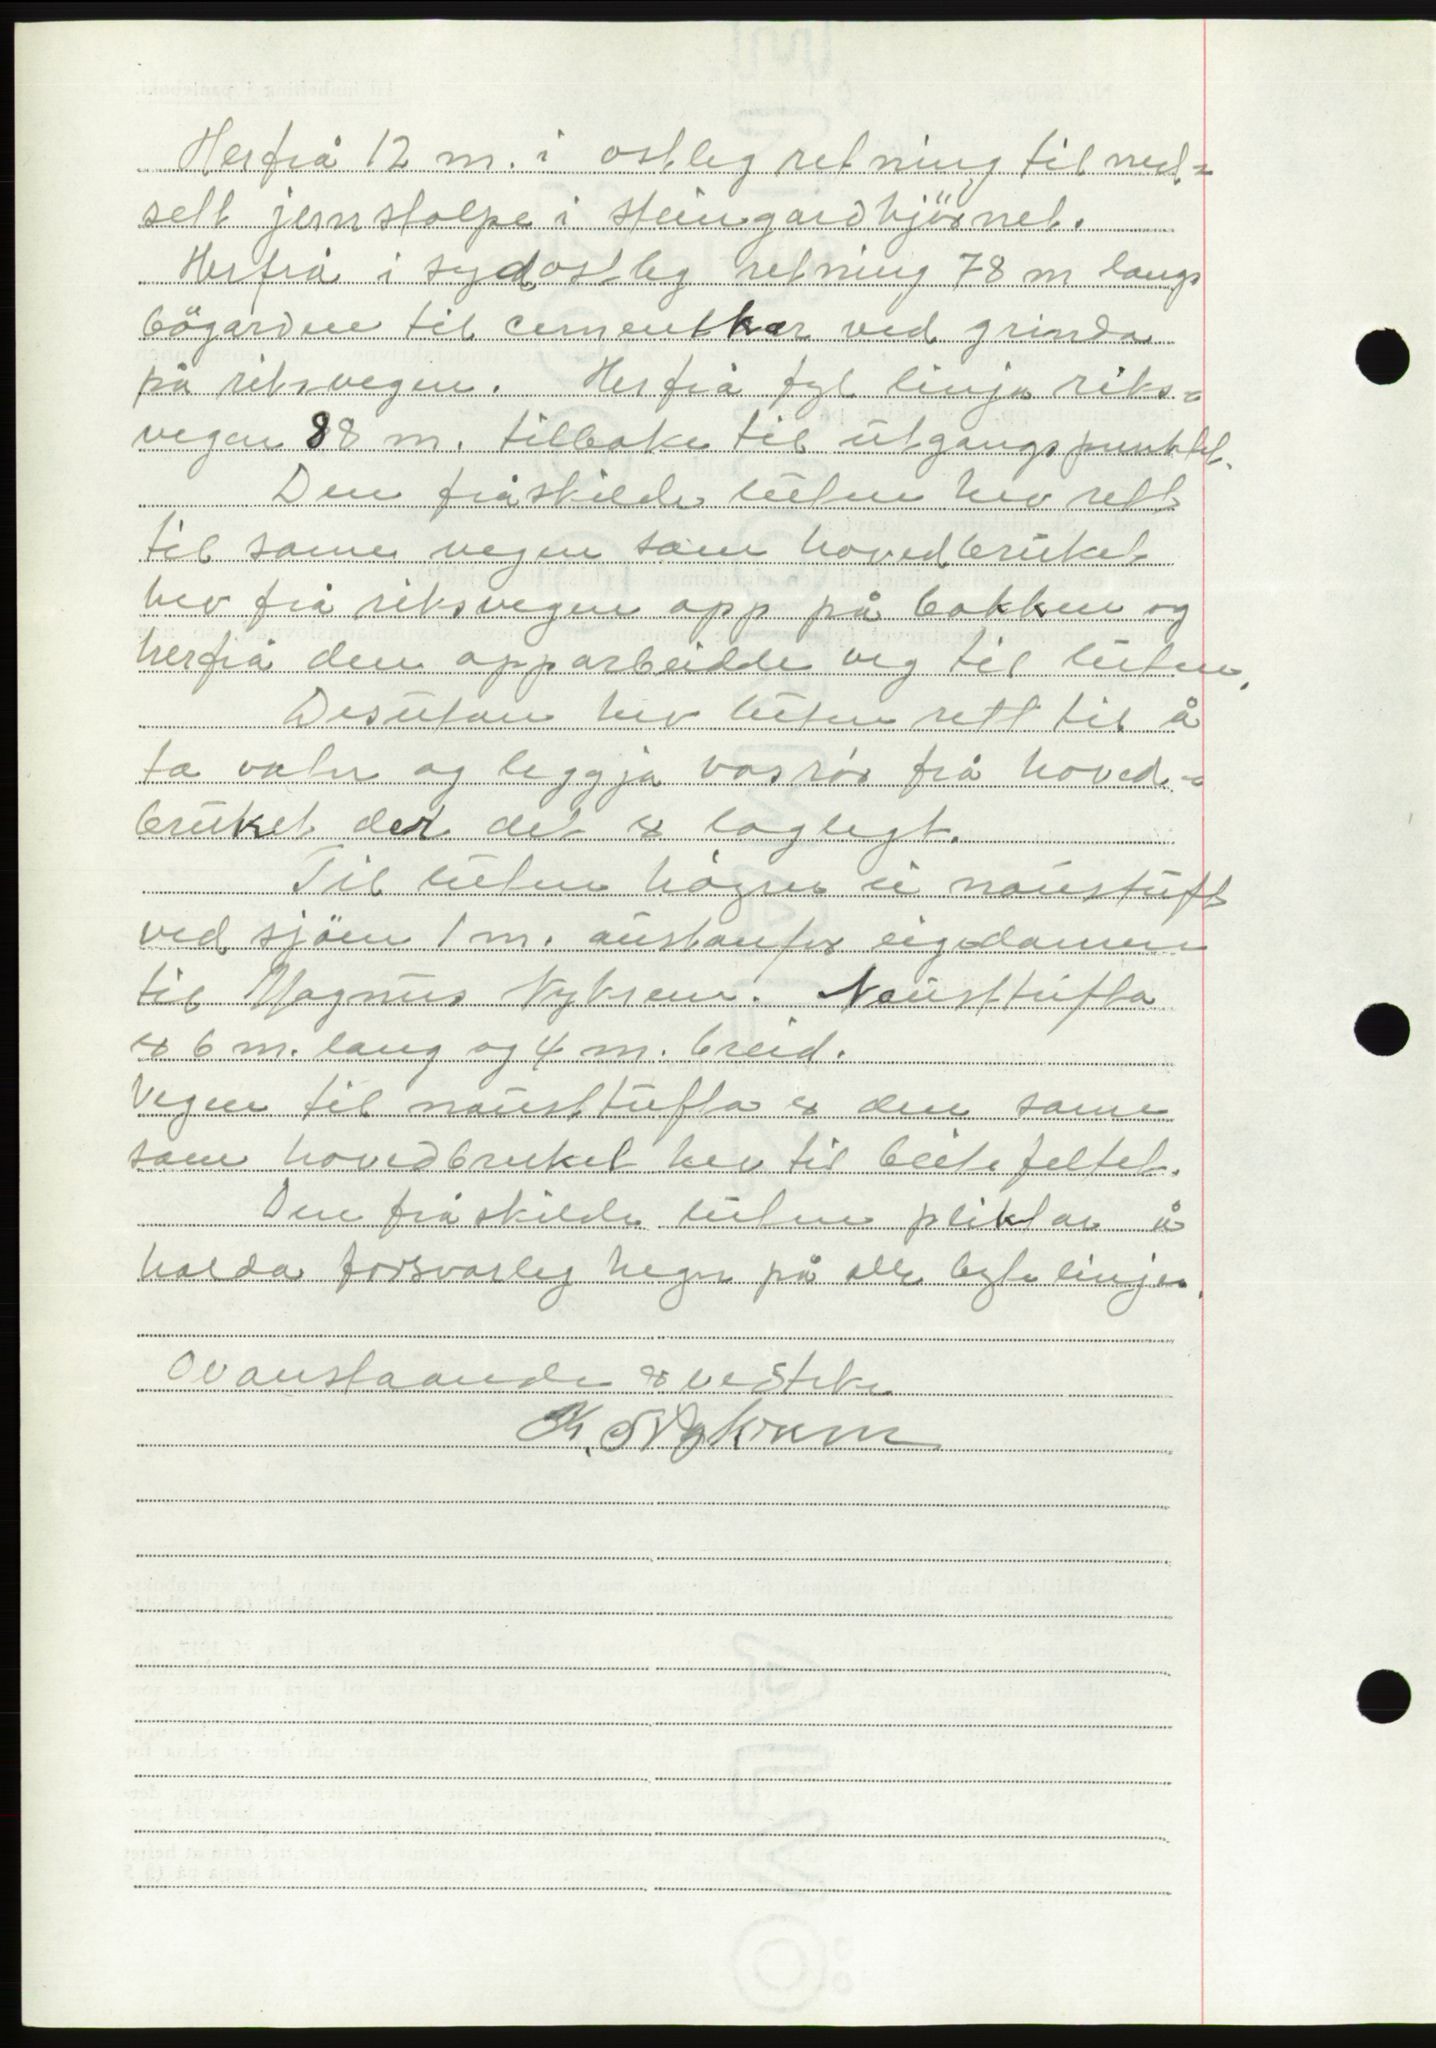 Herfrå 12 m. i ostleg retning til ned-
sett jernstolpe i steingardhjörnet.
Herfrå i sydostleg retning 78 m langs
bögarden til cementkar ved grinda
på riksvegen. Herfrå fyl linja riks-
vegen 88 m. tilbake til utgangspunktet.
Den fråskilde luten hev rett
til same vegen som hovedbruket
hev frå riksvegen opp på bakken og
herfrå den opparbeidde veg til luten.
Desutan hev luten rett til å
ta vatn og leggja vasrör frå hoved-
bruket der det er laglegt.
Til luten högrer ei naustuft
ved sjöen 1 m. austanfor eigedomen
til Magnus Nykrem. Nausttufta
er 6 m. lang og 4 m. breid.
Vegen til nausttufta er den same
som hovedbruket hev til beitefeltet.
Den fråskilde luten pliktar å
halda forsvarleg hegn på alle bytelinjer.
Ovanstaande er vedteke
K. Nykrem